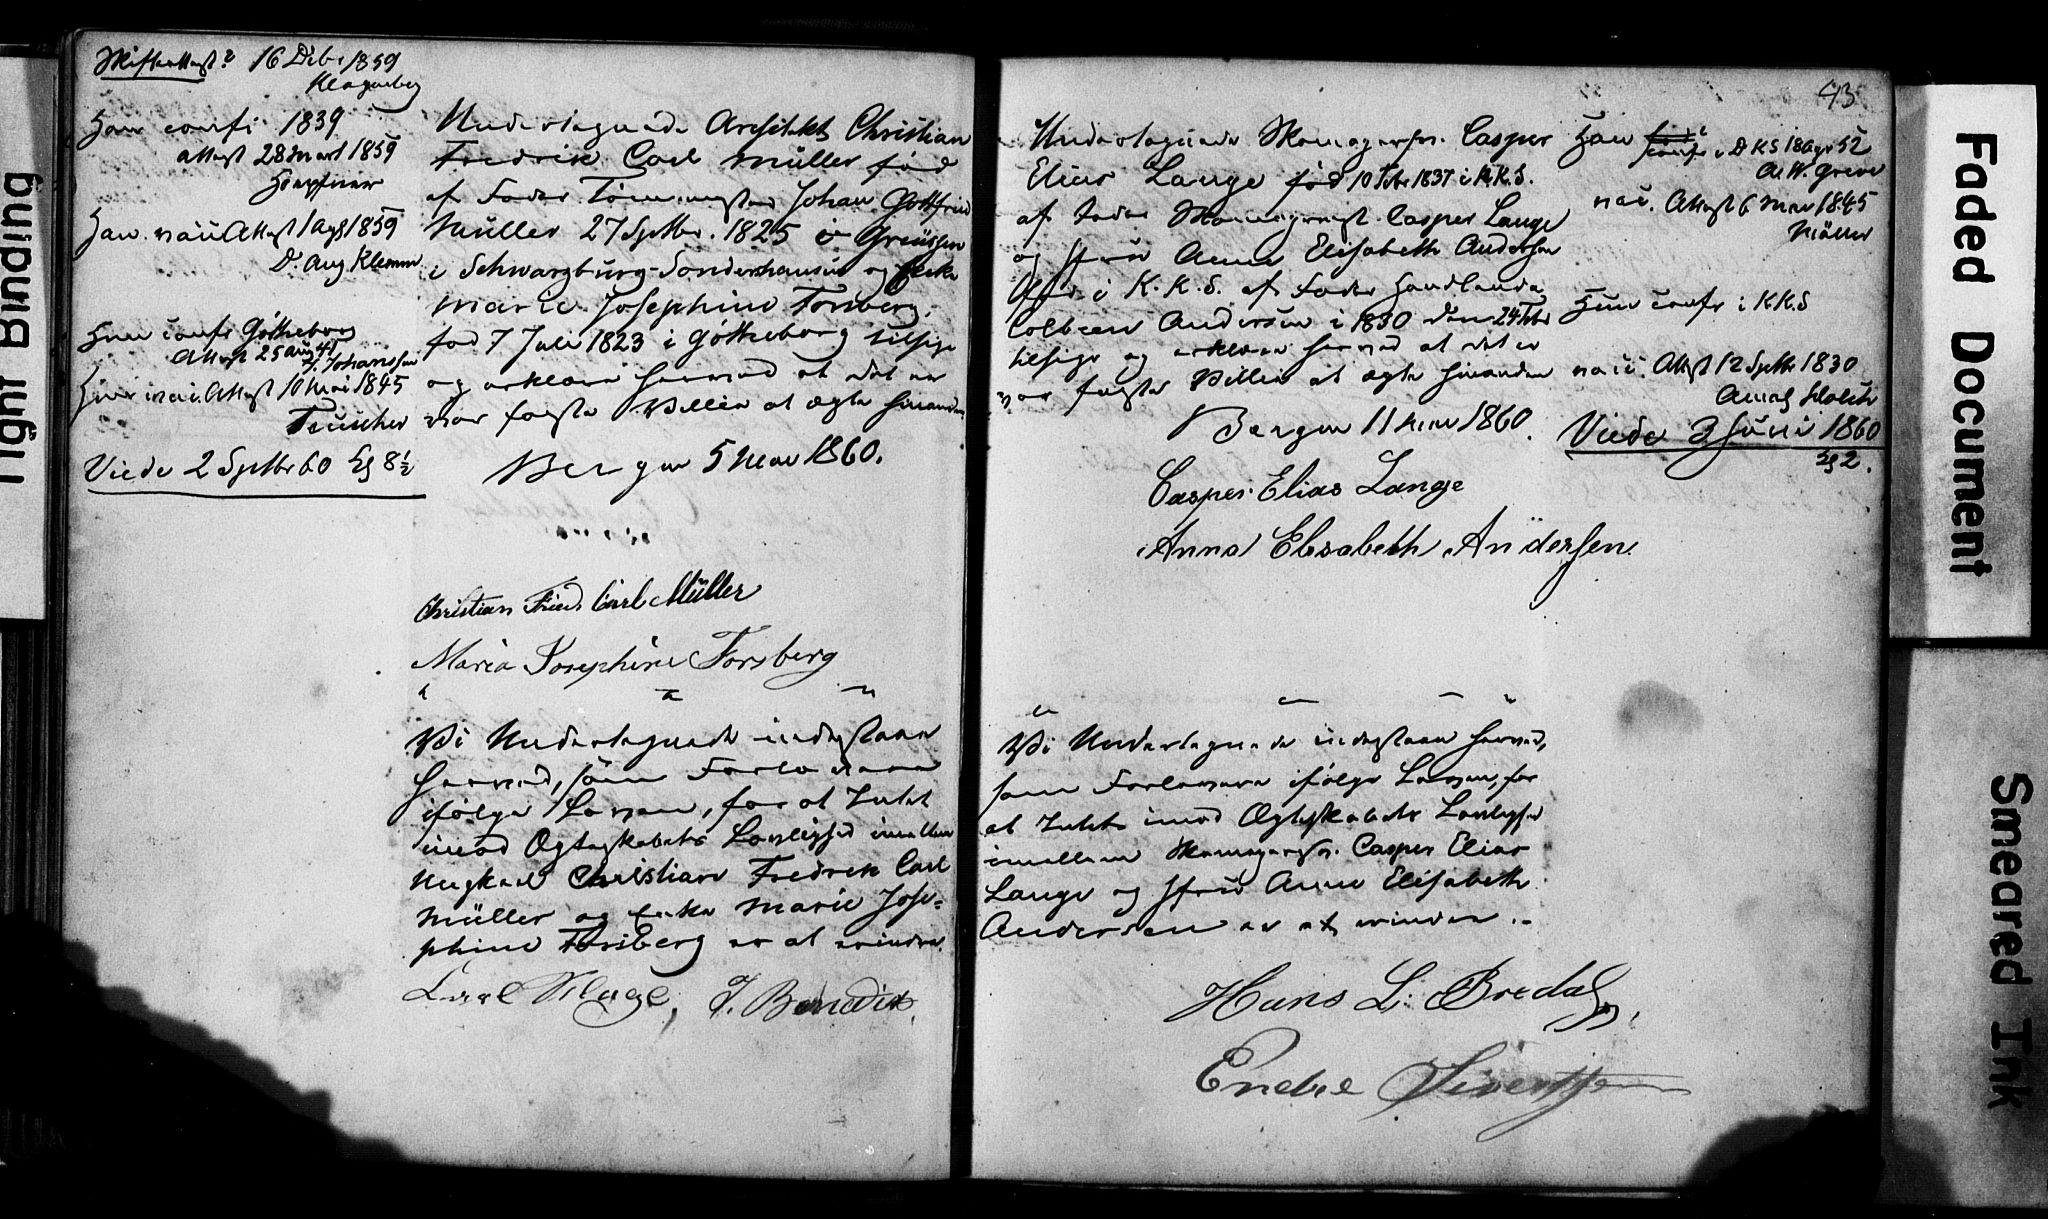 Skifteattest? 16 Debr 1859
Klagenberg
Han confi 1839
attest 28 Mart 1859
Han vaci. Attest 1 Ags 1859
D. Aug Klemm
Hun confr Götheborg
Attest 25 Aug 41
F. Johansson
Hun vaci. Attest 10 Mai 1845
Teuscher
Viede 2 Septbr 60 Kl 8½
Undertegnede Arcfitekt Christian
Fredrik Carl Müller fød
af Fader Tømmermester Johan Gottfried
Müller 27 Septbr. 1825 i Greüssen
i Schwarzburg-Sondershausen og Enke
Marie Josephine Forsberg,
fød 7 Juli 1823 i Götheborg tilsige
og erklære herved at det er
vor faste Villie at ægte hinanden
Bergen 5 Mai 1860.
Christian Fried Carl Müller
Maria Josephine Forsberg
Vi Undertegnede indestaae
herved, som Forlovere
ifølge Loven, for at Intet
imod Ægteskabets Lovlighed imellem
Ungkarl Christian Fredrik Carl
Müller og Enke Marie Jose=
phine Forsberg er at erindre.
Carl Klage, J. Benedix
43
Undertegnede Skomagersv. Casper
Elias Lange fød 10 Febr 1837 i K.K.S.
af Fader Skomagermst. Casper Lange
og Pfrü Anne Elisabeth Andersen
fød i K.K.S. af Fader Handlende
Colbeen Andersen i 1830 den 24 Febr
tilsige og erklære herved at det er
vor faste Villie at ægte hinanden
Bergen 11 Mai 1860.
Casper Elias Lange
Anna Elisabeth Andersen
Han confr i DKS 18 Apr 52
A.W. Greve
vaci. Attest 6 Mai 1845
Müller
Hun confr i KKS
vacc. Attest 12 Septbr 1830
Viede 3 Juni 1860
Kl 2.
Vi Undertegnede indestaae herved,
som Forlovere ifølge Loven, for
at Intet imod Ægteskabets Lovlighed
imellem Skomagersv. Casper Elias
Lange og Pfrü Anne Elisabeth
Andersen er at erindre.
Hans L. Bredahl,
Endre Sivertsen
Tight Binding
Faded Document
Smeared Ink